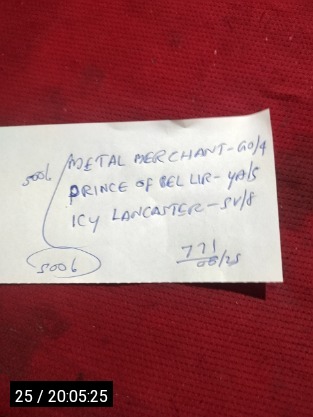 500L METAL MERCHANT-GO/4
PRINCE OF BEL LIR- YA/5
ICY LANCASTER-SV/8
500L
771
08/25
25 / 20:05:25